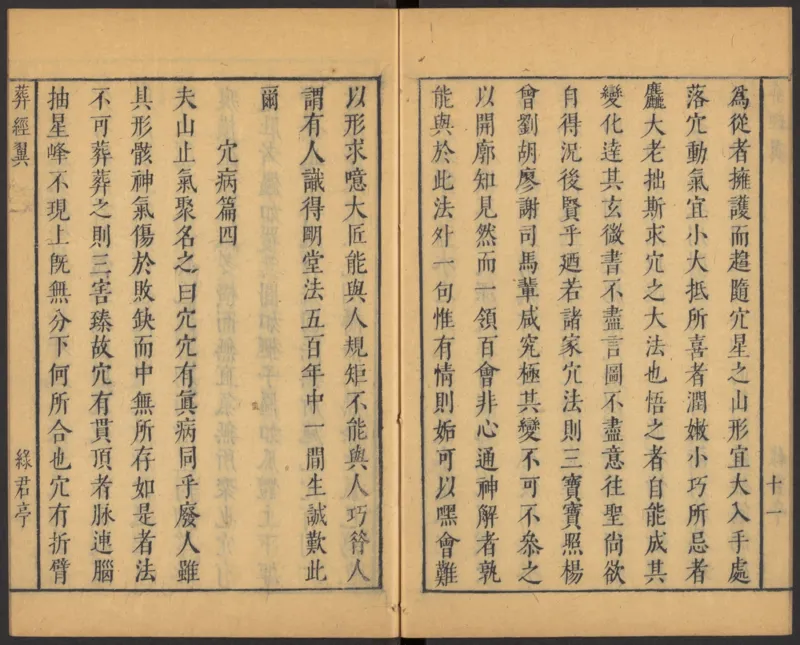 為從者擁護而趨隨穴星之山形宜大入手處
落穴動氣宜小大抵所喜者潤嫩小巧所忌者
麤大老拙斯求穴之大法也悟之者自能成其
變化達其玄微書不盡言圖不盡意往聖尙欲
自得況後賢乎廼若諸家穴法則三寶寶照楊
曾劉胡廖謝司馬輩咸究極其變不可不叅之
以開廓知見然而一領百會非心通神解者孰
能與於此法外一句惟有情則姤可以嘿會難
十一
以形求噫大匠能與人規矩不能與人巧昝人
謂有人識得明堂法五百年中一間生誠歎此
爾
穴病篇四
夫山止氣聚名之曰穴穴有眞病同乎廢人雖
具形骸神氣傷於敗缺而中無所存如是者法
不可葬葬之則三害臻故穴有貫頂者脉連腦
抽星峰不現上旣無分下何所合也穴有折臂
葬經翼
綠君亭